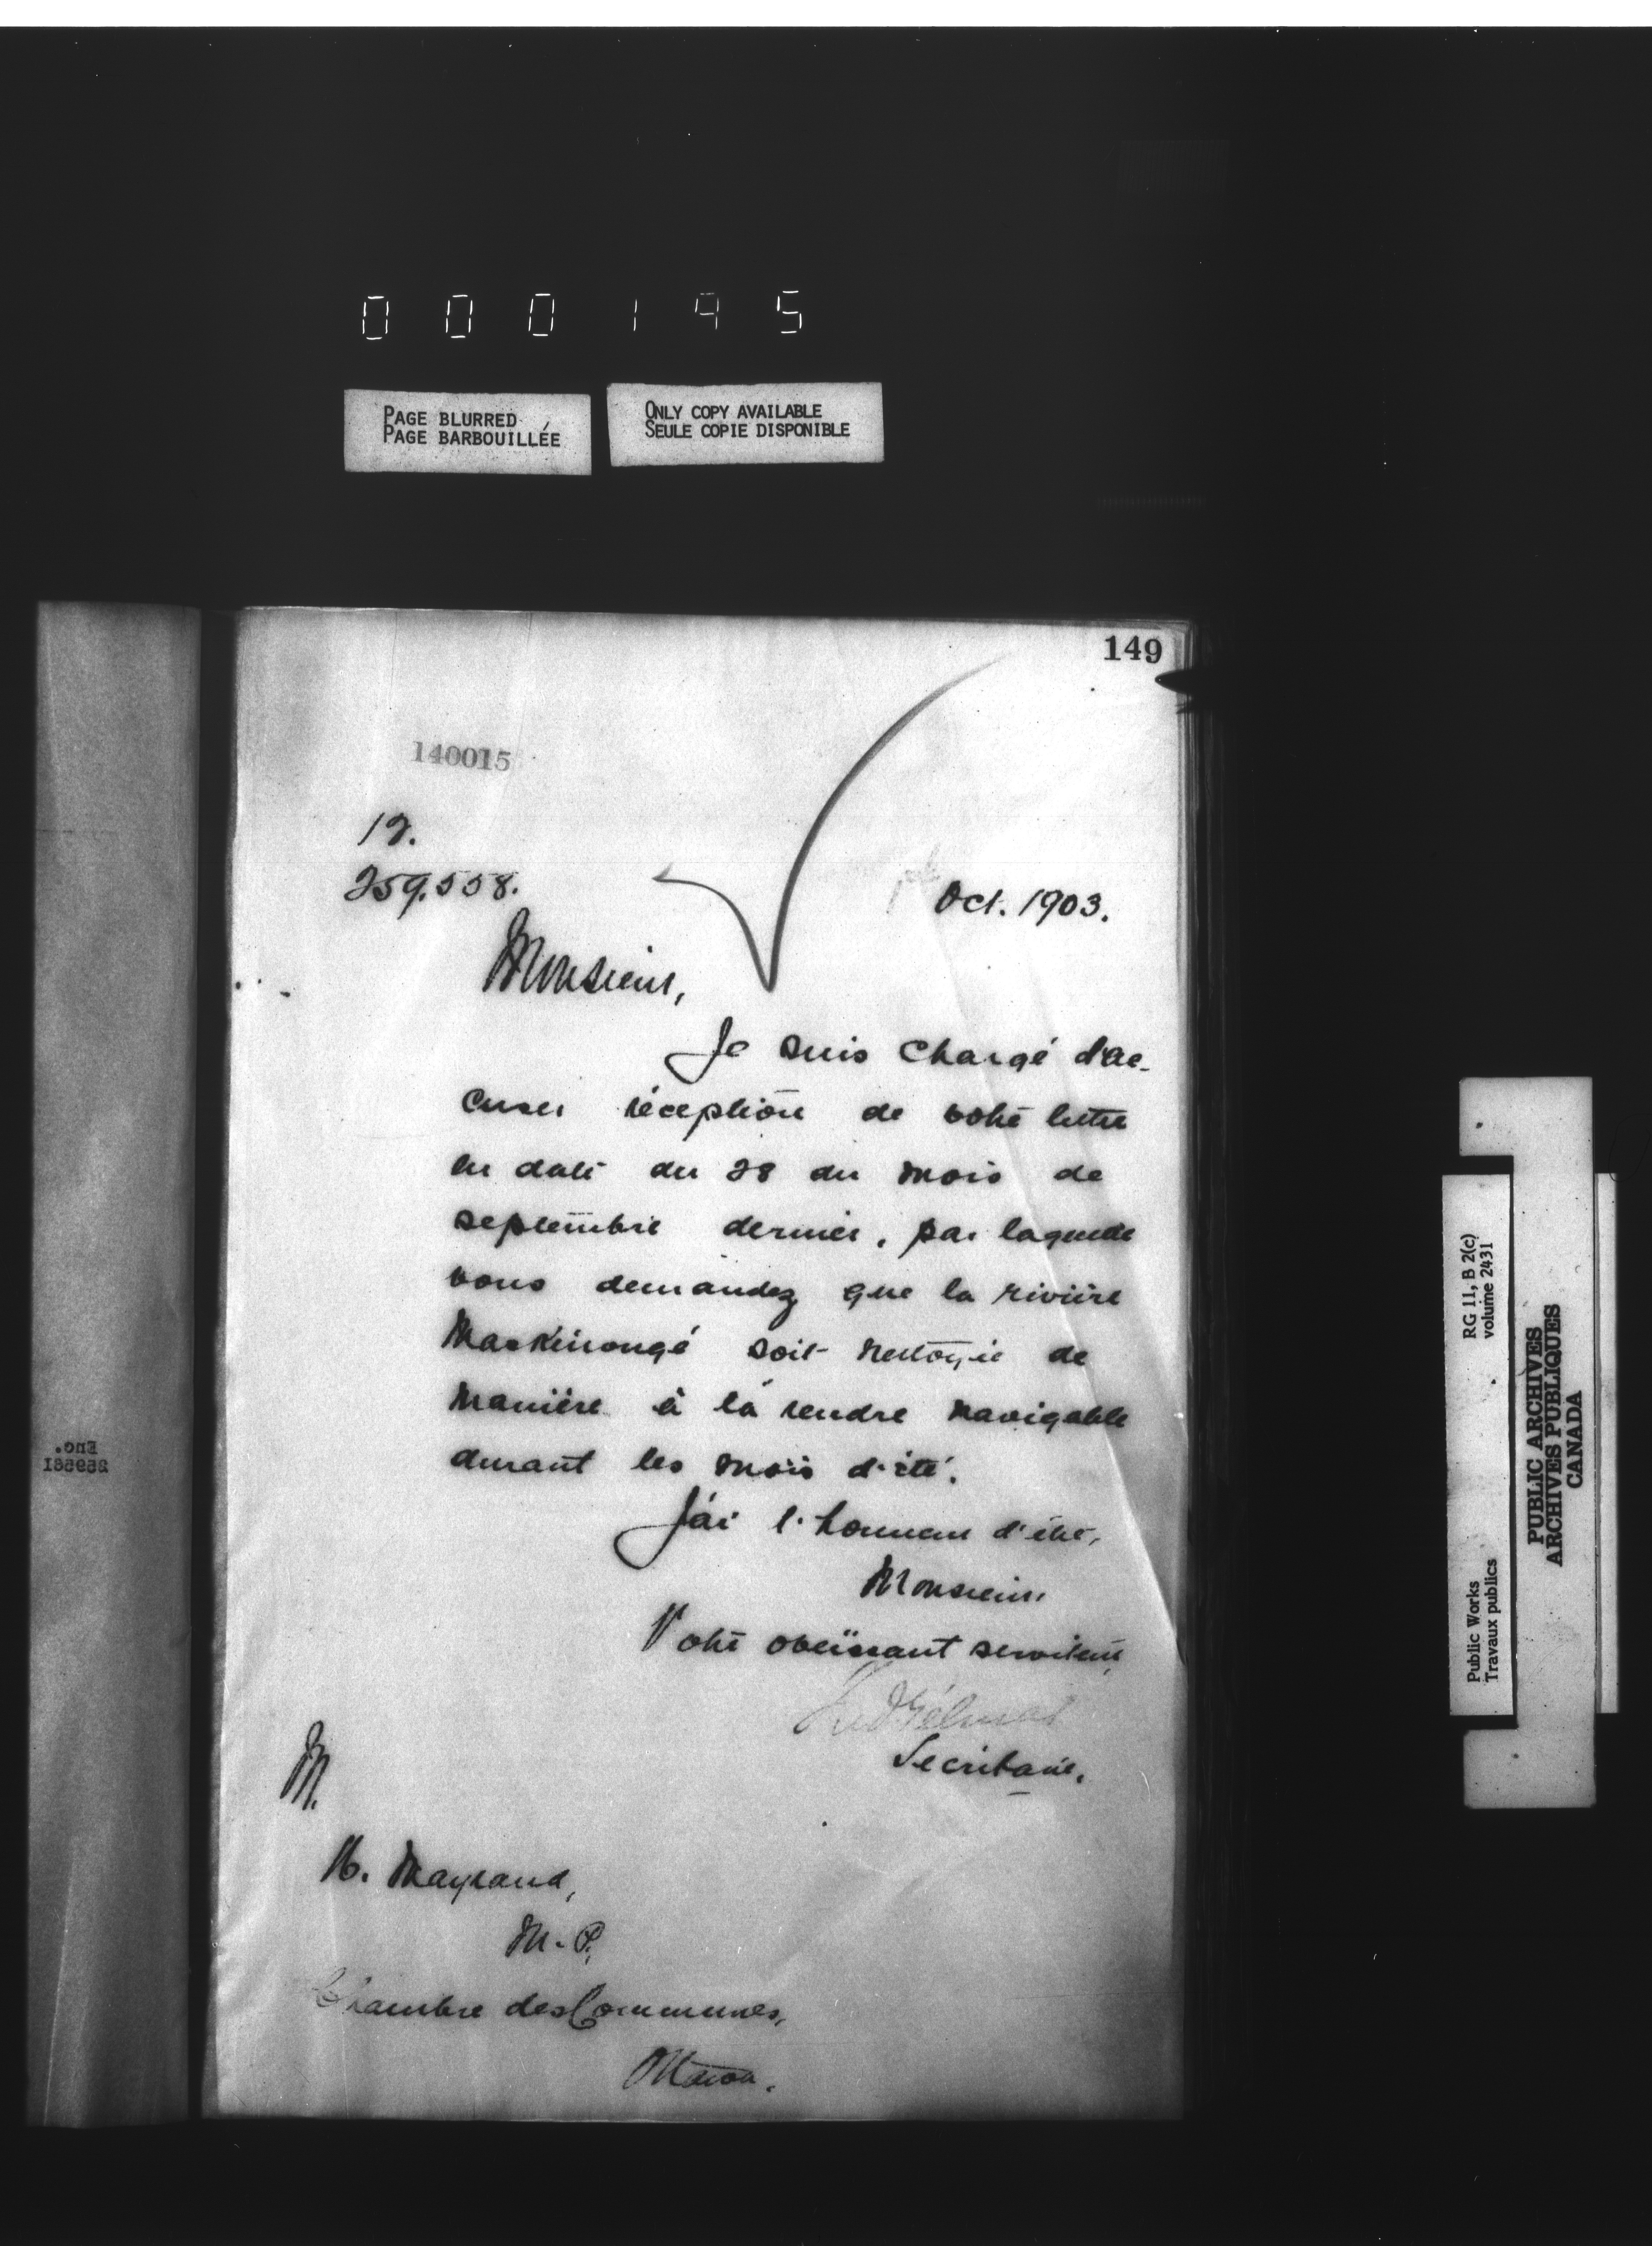 000195
PAGE BLURRED
PAGE BARBOUILLÉE
ONLY COPY AVAILABLE
SEULE COPIE DISPONIBLE
149
140015
12.
259.558.
Oct. 1903.
Monsieur,
Je suis chargé d'ac-
cuser réception de votre lettre
en date du 28 du mois de
septembre dernier, par laquelle
vous demandez que la rivière
Maskinongé soit nettoyée de
manière à la rendre navigable
durant les mois d'été.
J'ai l'honneur d'être,
Monsieur,
Votre obéissant serviteur,
Secrétaire.
M.
H. Mayrand,
M.P.,
Chambre des Communes,
Ottawa.
Enc.
RG 11, B 2(c)
volume 2431
Public Works
Travaux publics
PUBLIC ARCHIVES
ARCHIVES PUBLIQUES
CANADA